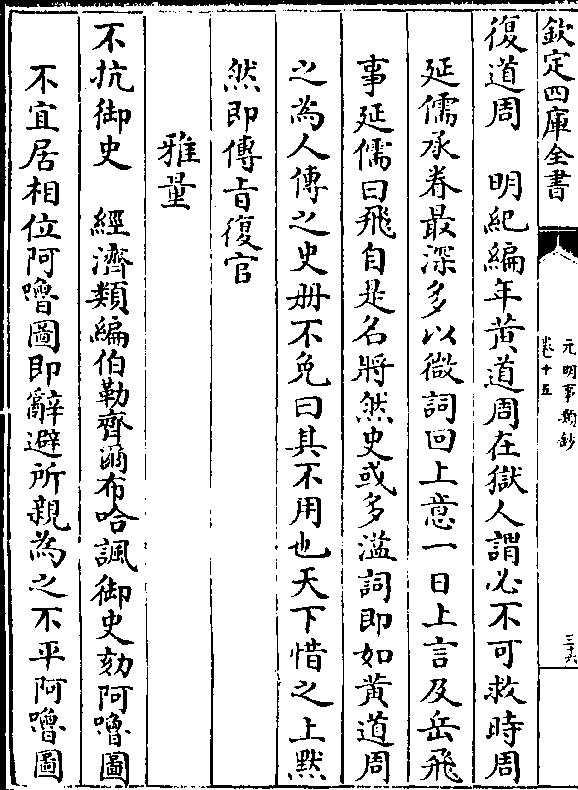 欽定四庫全書
元明事類鈔
卷十五
三十六
復道周　明紀編年黄道周在獄人謂必不可救時周
延儒承眷最深多以微詞回上意一日上言及岳飛
事延儒曰飛自是名將然史或多溢詞即如黄道周
之為人傳之史册不免曰其不用也天下惜之上黙
然即傳㫖復官
雅量
不抗御史　經濟類編伯勒齊爾布哈諷御史劾阿嚕圖
不宜居相位阿嚕圖即辭避所親為之不平阿嚕圖